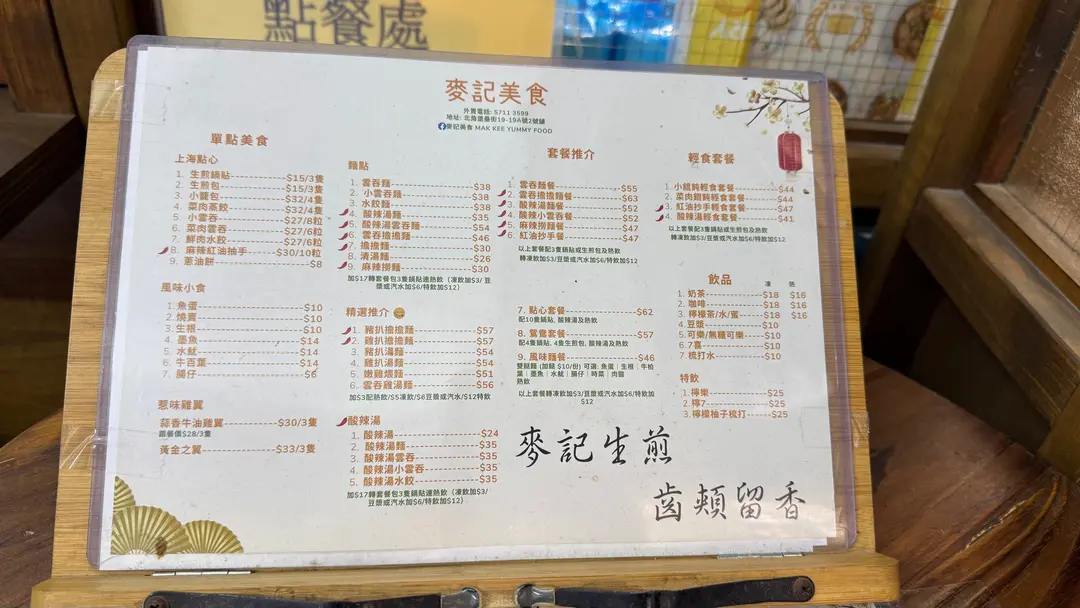 點餐處
麥記美食
外賣電話: 5711 3599
地址: 北角堡壘街19-19A號2號舖
麥記美食 MAK KEE YUMMY FOOD
單點美食
上海點心
1. 生煎鍋貼 $15/3隻
2. 生煎包 $15/3隻
3. 小籠包 $32/4隻
4. 菜肉蒸餃 $32/4隻
5. 小雲吞 $27/8粒
6. 菜肉雲吞 $27/6粒
7. 鮮肉水餃 $27/6粒
8. 麻辣紅油抽手 $30/10粒
9. 蔥油餅 $8
風味小食
1. 魚蛋 $10
2. 燒賣 $10
3. 生根 $10
4. 墨魚 $14
5. 水魷 $14
6. 牛百葉 $14
7. 腸仔 $6
惹味雞翼
蒜香牛油雞翼 $30/3隻
跟餐價$28/3隻
黃金之翼 $33/3隻
麵點
1. 雲吞麵 $38
2. 小雲吞麵 $38
3. 水餃麵 $38
4. 酸辣湯麵 $35
5. 酸辣湯雲吞麵 $54
6. 雲吞擔擔麵 $46
7. 擔擔麵 $30
8. 清湯麵 $26
9. 麻辣撈麵 $30
加$17轉套餐包3隻鍋貼連熱飲（凍飲加$3/ 豆
漿或汽水加$6/特飲加$12）
精選推介
1. 豬扒擔擔麵 $57
2. 雞扒擔擔麵 $57
3. 豬扒湯麵 $54
4. 雞扒湯麵 $54
5. 嫩雞煨麵 $51
6. 雲吞雞湯麵 $56
加$3配熱飲/$5凍飲/$6豆漿或汽水/$12特飲
酸辣湯
1. 酸辣湯 $24
2. 酸辣湯麵 $35
3. 酸辣湯雲吞 $35
4. 酸辣湯小雲吞 $35
5. 酸辣湯水餃 $35
加$17轉套餐包3隻鍋貼連熱飲（凍飲加$3/
豆漿或汽水加$6/特飲加$12）
套餐推介
1. 雲吞麵餐 $55
2. 雲吞擔擔麵餐 $63
3. 酸辣湯麵餐 $52
4. 酸辣小雲吞餐 $52
5. 麻辣撈麵餐 $47
6. 紅油抄手餐 $47
以上套餐配3隻鍋貼或生煎包及熱飲
轉凍飲加$3/豆漿或汽水加$6/特飲加$12
7. 點心套餐 $62
配10隻鍋貼, 酸辣湯及熱飲
8. 鴛鴦套餐 $57
配4隻鍋貼, 4隻生煎包, 酸辣湯及熱飲
9. 風味麵餐 $46
雙餸麵 (加餸 $10/份) 可選: 魚蛋｜生根｜牛柏
葉｜墨魚｜水魷｜腸仔｜時菜｜肉鬆
熱飲
以上套餐轉凍飲加$3/豆漿或汽水加$6/特飲加
$12
輕食套餐
1. 小餛飩輕食套餐 $44
2. 菜肉餛飩輕食套餐 $44
3. 紅油抄手輕食套餐 $47
4. 酸辣湯輕食套餐 $41
以上套餐配3隻鍋貼或生煎包及熱飲
轉凍飲加$3/豆漿或汽水加$6/特飲加$12
飲品 凍 熱
1. 奶茶 $18 $16
2. 咖啡 $18 $16
3. 檸檬茶/水/蜜 $18 $16
4. 豆漿 $10
5. 可樂/無糖可樂 $10
6. 7喜 $10
7. 梳打水 $10
特飲
1. 檸樂 $25
2. 檸7 $25
3. 檸檬柚子梳打 $25
麥記生煎
齒頰留香